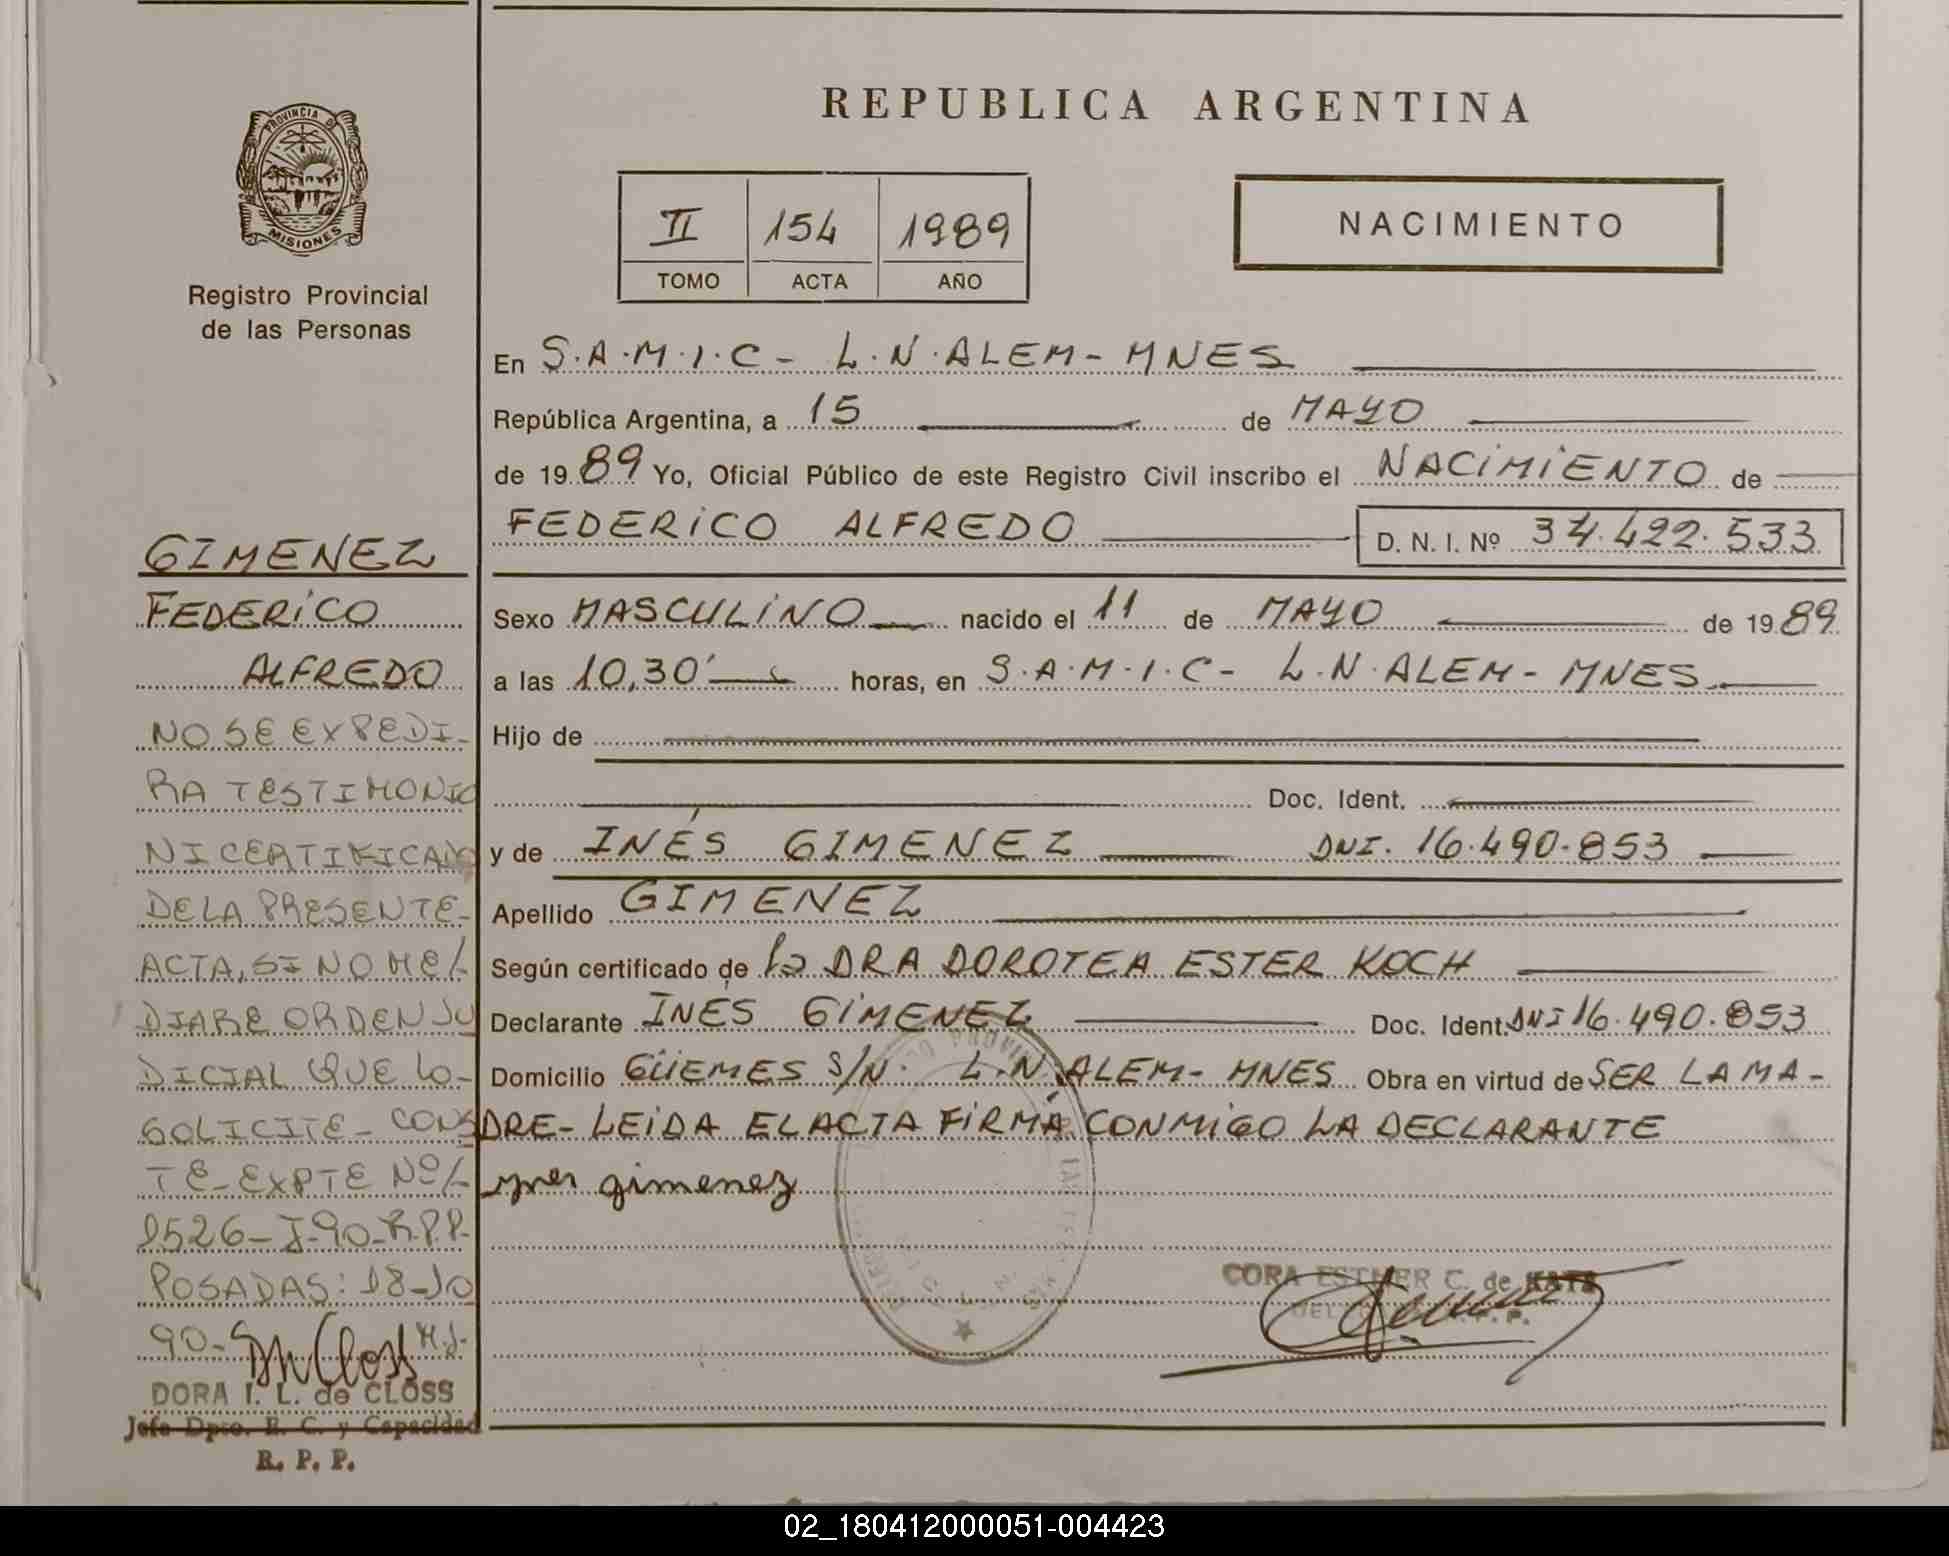 REPUBLICA ARGENTINA
PROVINCIA DE
MISIONES
Registro Provincial
de las Personas
II 154 1989
TOMO ACTA AÑO
NACIMIENTO
En S.A.M.I.C- L.N.ALEM- MNES
República Argentina, a 15 de MAYO
de 1989 Yo, Oficial Público de este Registro Civil inscribo el NACIMIENTO de
FEDERICO ALFREDO D. N. I. Nº 34.422.533
Sexo MASCULINO nacido el 11 de MAYO de 1989
a las 10,30' horas, en S.A.M.I.C- L.N.ALEM- MNES
Hijo de
Doc. Ident.
y de INÉS GIMENEZ DNI. 16.490.853
Apellido GIMENEZ
Según certificado de la DRA DOROTEA ESTER KOCH
Declarante INÉS GIMENEZ Doc. Ident. DNI 16.490.853
Domicilio GÜEMES S/N. L.N.ALEM- MNES Obra en virtud de SER LA MA-
DRE- LEIDA EL ACTA FIRMA CONMIGO LA DECLARANTE
ynes gimenez
CORA ESTHER C. de
GIMENEZ
FEDERICO
ALFREDO
NO SE EXPEDI-
RA TESTIMONIO
NI CERTIFICADO
DE LA PRESENTE-
ACTA, SI NO ME/-
DIARE ORDEN JU
DICIAL QUE LO-
SOLICITE- CONS
TE- EXPTE Nº/-
1526-J-90-R.P.P.-
POSADAS: 18-10
90- M.J.-
DORA I. L. de CLOSS
Jefe Dpto. R. C. y Capacidad
R. P. P.
02_180412000051-004423